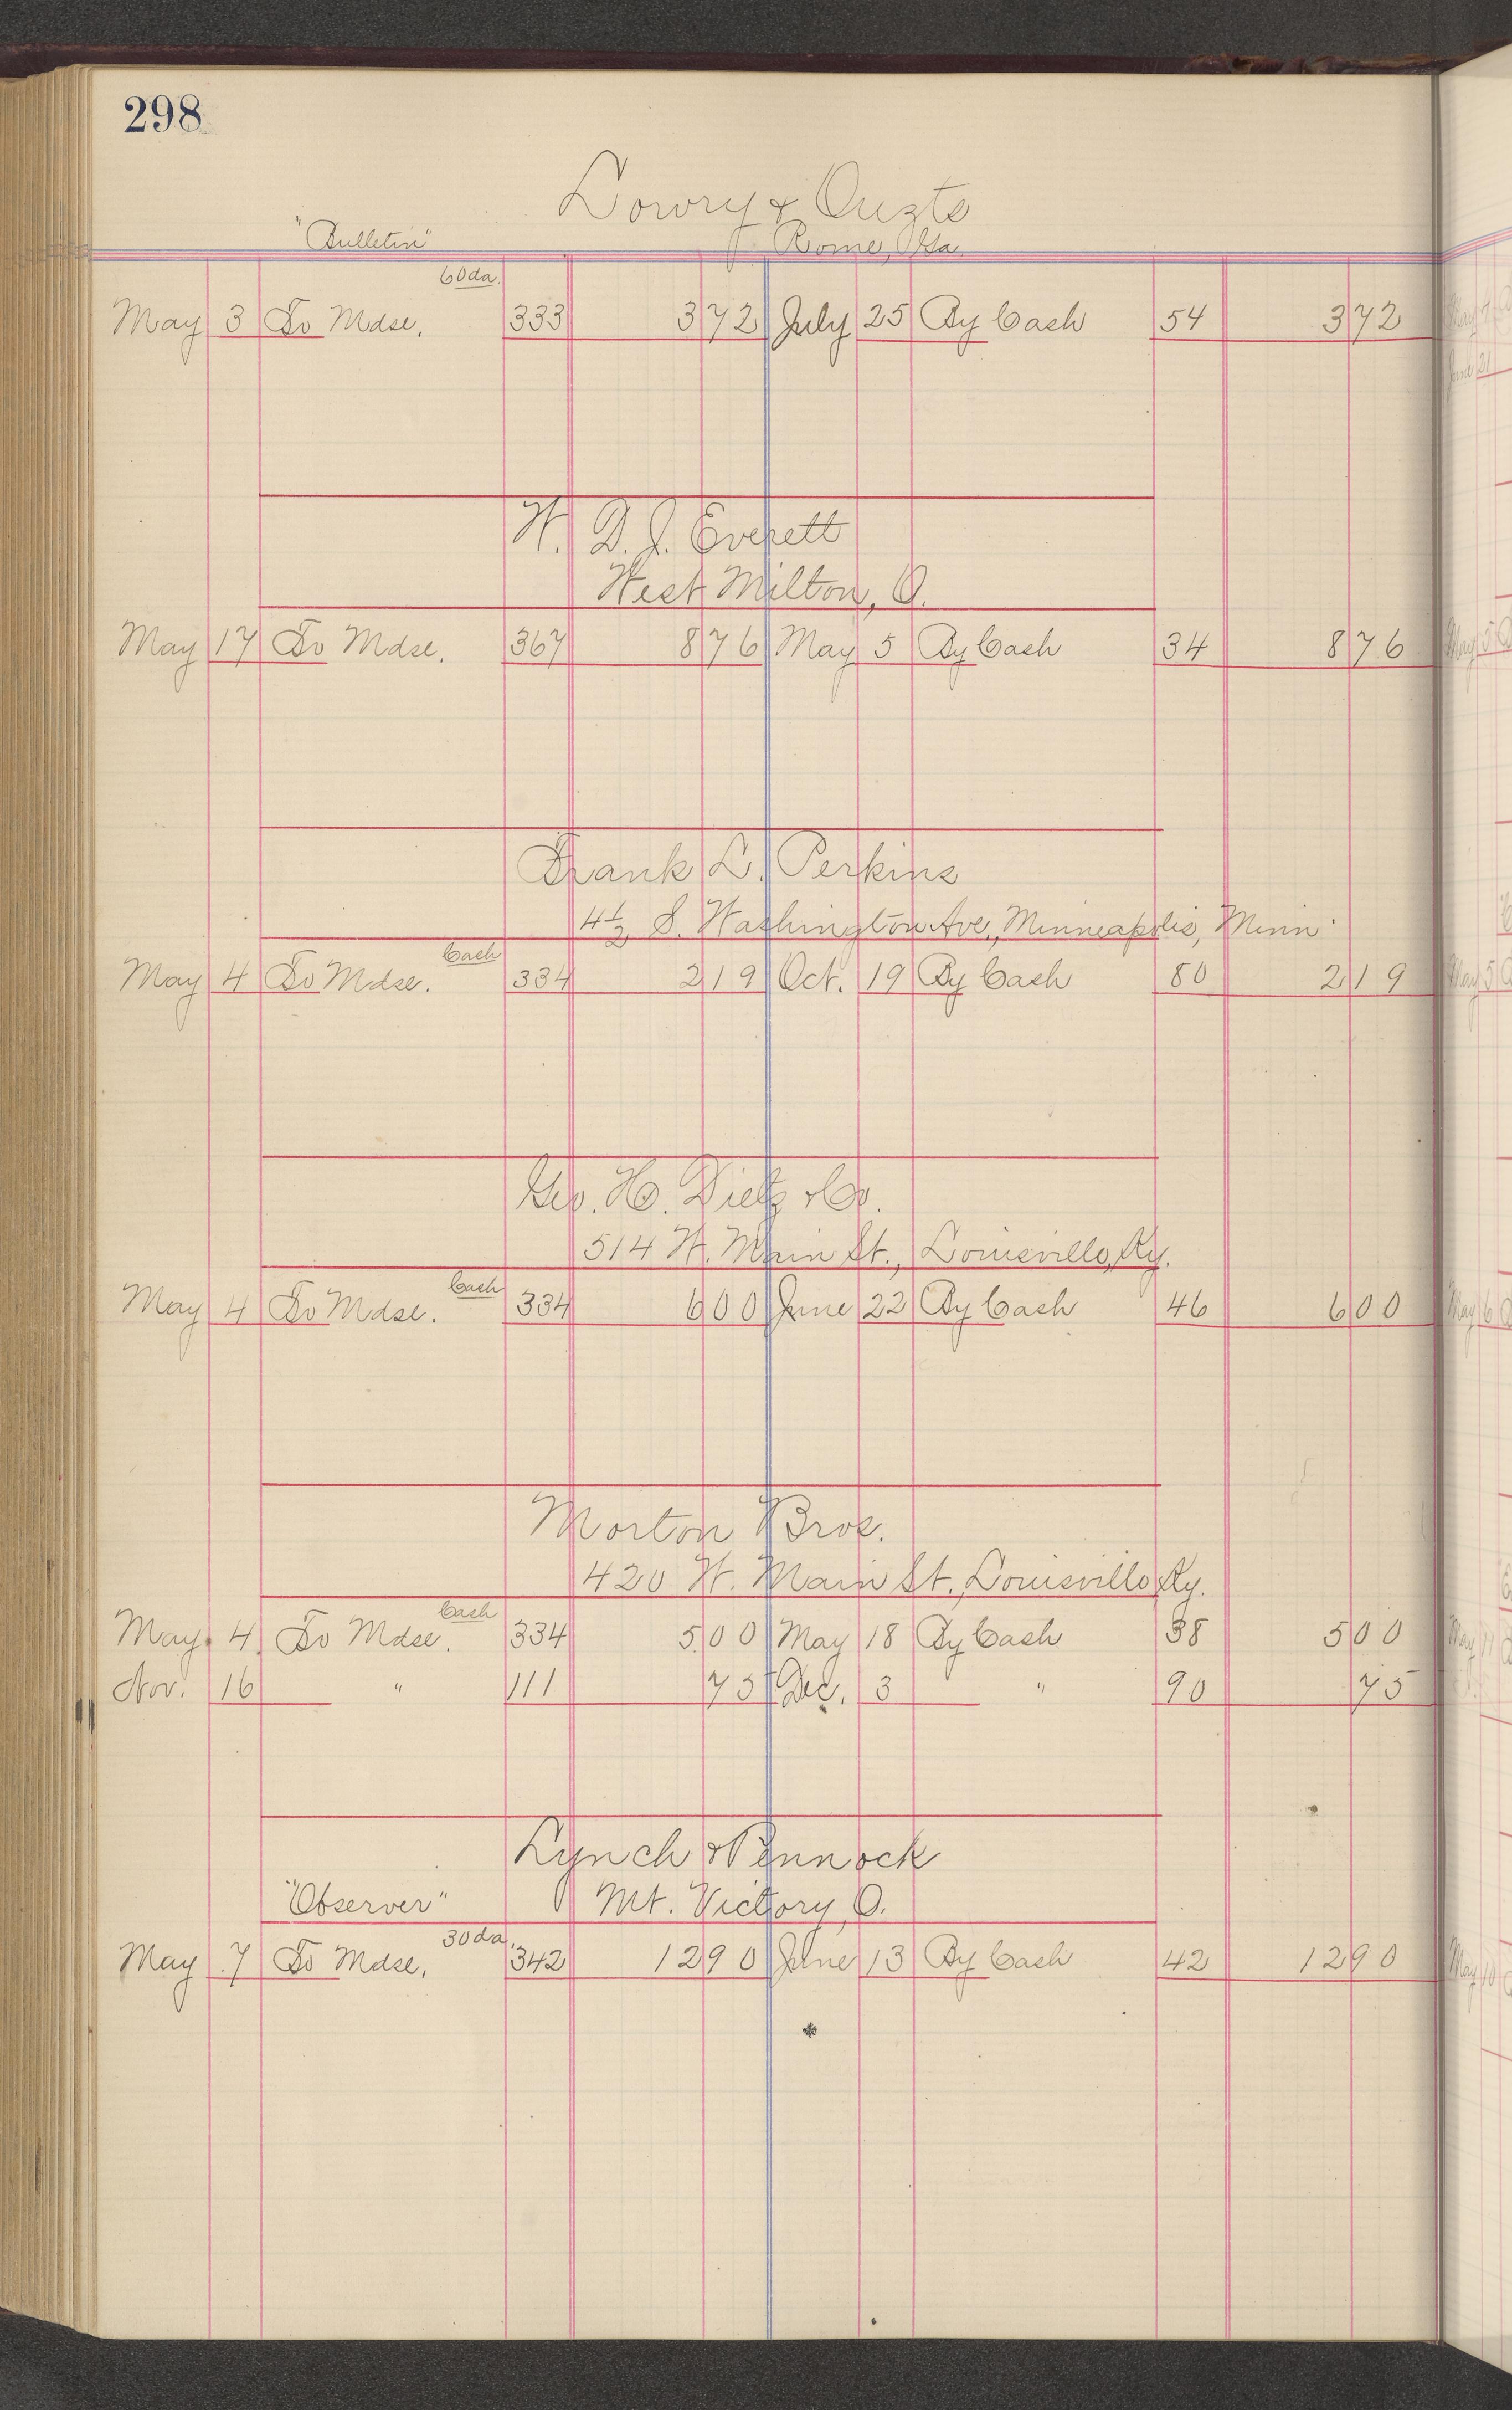 298
Lowry & Ouzts
"Bulletin" Rome, Ga.
60da.
May 3 To Mdse. 333 3 72 July 25 By Cash 54 3 72
W. D. J. Everett
West Milton, O.
May 17 To Mdse. 367 8 76 May 5 By Cash 34 8 76
Frank L. Perkins
4½ S. Washington Ave., Minneapolis, Minn.
Cash
May 4 To Mdse. 334 2 19 Oct. 19 By Cash 80 2 19
Geo. H. Dietz & Co.
514 W. Main St., Louisville, Ky.
Cash
May 4 To Mdse. 334 6 00 June 22 By Cash 46 6 00
Morton Bros.
420 W. Main St., Louisville Ky.
Cash
May 4 To Mdse. 334 5 00 May 18 By Cash 38 5 00
Nov. 16 " 111 75 Dec. 3 " 90 75
Lynch & Pennock
"Observer" Mt. Victory, O.
30da.
May 7 To Mdse. 342 12 90 June 13 By Cash 42 12 90